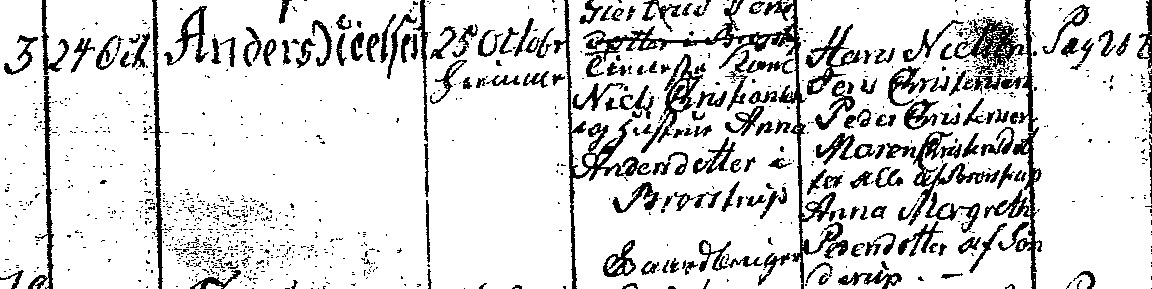 3
24 Oct
Anders Nielsen
25 Octobr
hiemme
Giertrud Jens
dotter i
Niels Christiansen
og hustrue Anna
Andersdotter i
Broestrup
Gaardbruger
Hans Nielsen
Jens Christensen
Peder Christensen
Maren Christensdot
ter alle af Broestrup
Anna Margreth
Pedersdotter af Søn
derup. -
Pag